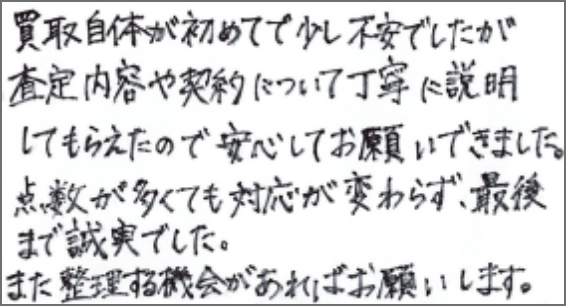 買取自体が初めてで少し不安でしたが
査定内容や契約について丁寧に説明
してもらえたので安心してお願いできました。
点数が多くても対応が変わらず、最後
まで誠実でした。
また整理する機会があればお願いします。